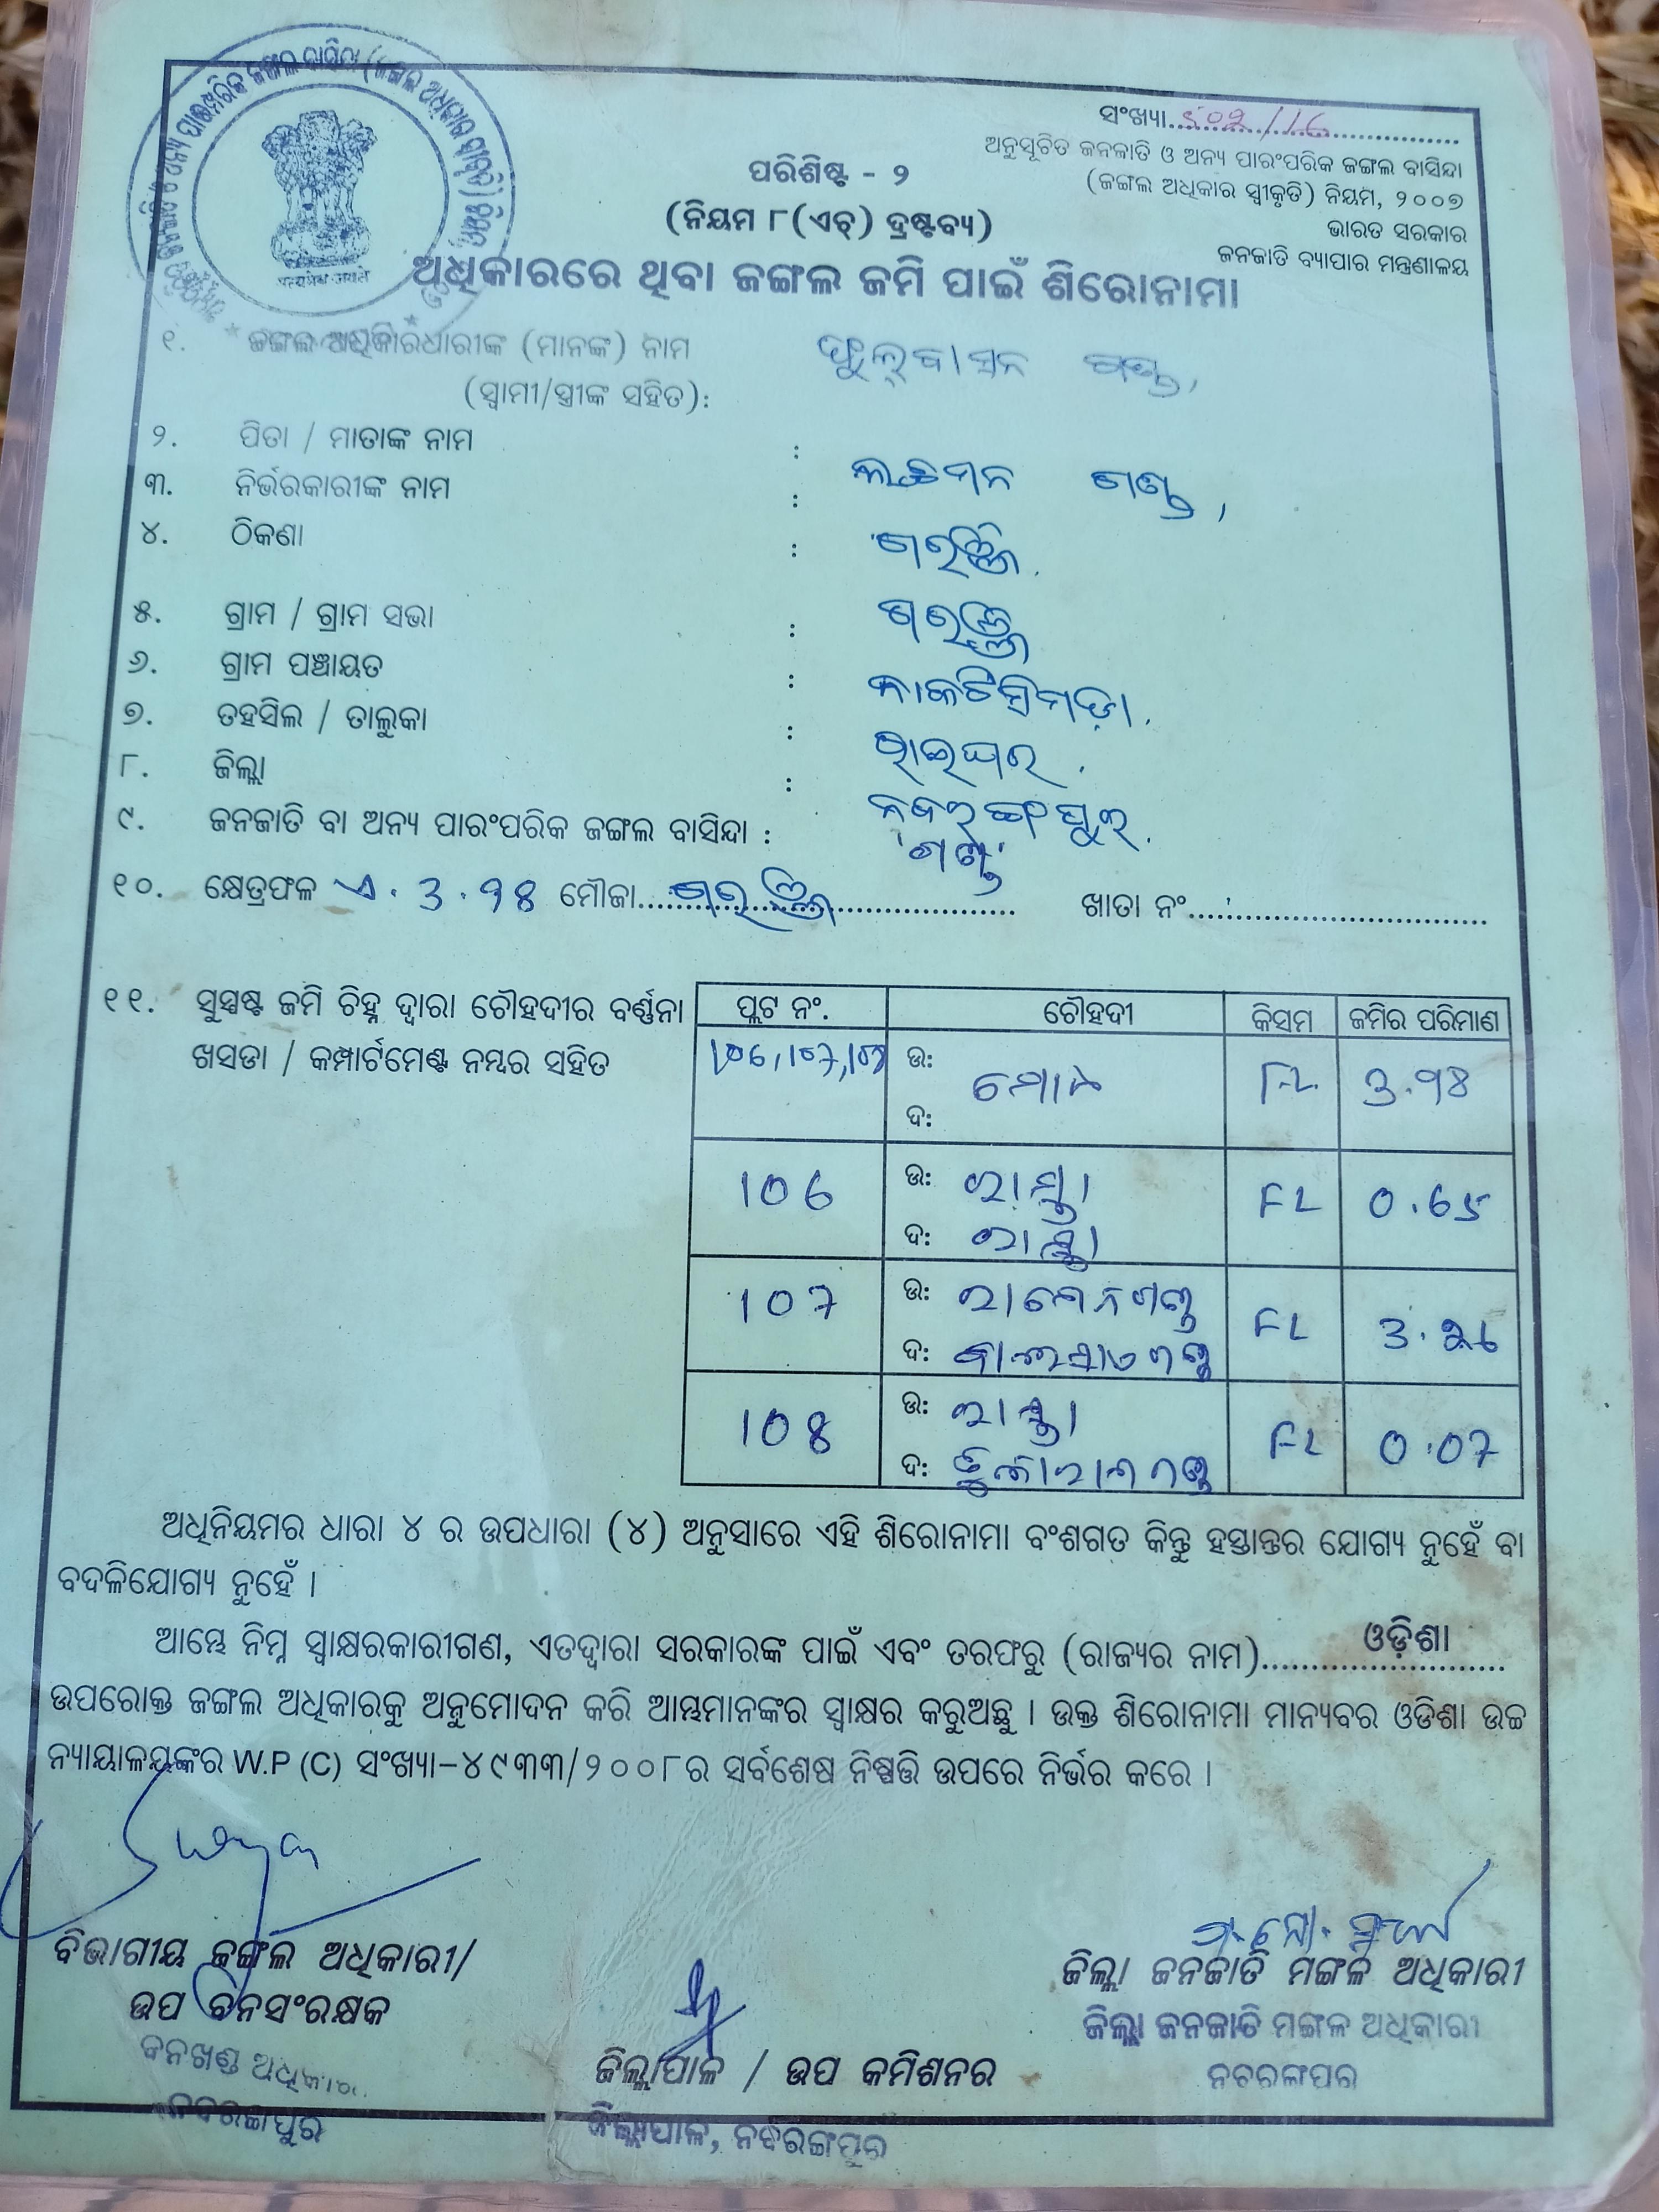 ସଂଖ୍ୟା
ଅନୁସୂଚିତ ଜନଜାତି ଓ ଅନ୍ୟ ପାରଂପରିକ ଜଙ୍ଗଲ ବାସିନ୍ଦା
(ଜଙ୍ଗଲ ଅଧିକାର ସ୍ୱୀକୃତି) ନିୟମ, ୨୦୦୭
ଭାରତ ସରକାର
ଜନଜାତି ବ୍ୟାପାର ମନ୍ତ୍ରଣାଳୟ
ପରିଶିଷ୍ଟ - ୨
(ନିୟମ ୮(ଏଚ୍) ଦ୍ରଷ୍ଟବ୍ୟ)
ଅଧିକାରରେ ଥିବା ଜଙ୍ଗଲ ଜମି ପାଇଁ ଶିରୋନାମା
୧. ଜଙ୍ଗଲ ଅଧିକାରଧାରୀଙ୍କ (ମାନଙ୍କ) ନାମ ଫୁଲ୍‌ବାସନ ଗଣ୍ଡ,
(ସ୍ୱାମୀ/ସ୍ତ୍ରୀଙ୍କ ସହିତ):
୨. ପିତା / ମାତାଙ୍କ ନାମ : ଲଛମନ ଗଣ୍ଡ,
୩. ନିର୍ଭରକାରୀଙ୍କ ନାମ :
୪. ଠିକଣା :
୫. ଗ୍ରାମ / ଗ୍ରାମ ସଭା :
୬. ଗ୍ରାମ ପଞ୍ଚାୟତ :
୭. ତହସିଲ / ତାଲୁକା : ରାଇଘର.
୮. ଜିଲ୍ଲା : ନବରଙ୍ଗପୁର.
୯. ଜନଜାତି ବା ଅନ୍ୟ ପାରଂପରିକ ଜଙ୍ଗଲ ବାସିନ୍ଦା : 'ଗଣ୍ଡ'
୧୦. କ୍ଷେତ୍ରଫଳ ଏ. 3.98 ମୌଜା ଖାତା ନଂ
୧୧. ସୁସ୍ପଷ୍ଟ ଜମି ଚିହ୍ନ ଦ୍ୱାରା ଚୌହଦୀର ବର୍ଣ୍ଣନା
ଖସଡା / କମ୍ପାର୍ଟମେଣ୍ଟ ନମ୍ବର ସହିତ
ପ୍ଲଟ ନଂ. ଚୌହଦୀ କିସମ ଜମିର ପରିମାଣ
106,107,108 ଉ: ମୋଟ FL 3.98
ଦ:
106 ଉ: ରାସ୍ତା FL 0.65
ଦ: ରାସ୍ତା
107 ଉ: FL 3.26
ଦ:
108 ଉ: ରାସ୍ତା FL 0.07
ଦ:
ଅଧିନିୟମର ଧାରା ୪ ର ଉପଧାରା (୪) ଅନୁସାରେ ଏହି ଶିରୋନାମା ବଂଶଗତ କିନ୍ତୁ ହସ୍ତାନ୍ତର ଯୋଗ୍ୟ ନୁହେଁ ବା
ବଦଳିଯୋଗ୍ୟ ନୁହେଁ ।
ଆମ୍ଭେ ନିମ୍ନ ସ୍ୱାକ୍ଷରକାରୀଗଣ, ଏତଦ୍ୱାରା ସରକାରଙ୍କ ପାଇଁ ଏବଂ ତରଫରୁ (ରାଜ୍ୟର ନାମ) ଓଡ଼ିଶା
ଉପରୋକ୍ତ ଜଙ୍ଗଲ ଅଧିକାରକୁ ଅନୁମୋଦନ କରି ଆମ୍ଭମାନଙ୍କର ସ୍ୱାକ୍ଷର କରୁଅଛୁ । ଉକ୍ତ ଶିରୋନାମା ମାନ୍ୟବର ଓଡିଶା ଉଚ୍ଚ
ନ୍ୟାୟାଳୟଙ୍କର W.P (C) ସଂଖ୍ୟା-୪୯୩୩/୨୦୦୮ର ସର୍ବଶେଷ ନିଷ୍ପତ୍ତି ଉପରେ ନିର୍ଭର କରେ ।
ବିଭାଗୀୟ ଜଙ୍ଗଲ ଅଧିକାରୀ/
ଉପ ବନସଂରକ୍ଷକ
ବନଖଣ୍ଡ ଅଧିକାରୀ
ନବରଙ୍ଗପୁର
ଜିଲ୍ଲାପାଳ / ଉପ କମିଶନର
ଜିଲ୍ଲାପାଳ, ନବରଙ୍ଗପୁର
ଜିଲ୍ଲା ଜନଜାତି ମଙ୍ଗଳ ଅଧିକାରୀ
ଜିଲ୍ଲା ଜନଜାତି ମଙ୍ଗଳ ଅଧିକାରୀ
ନବରଙ୍ଗପୁର